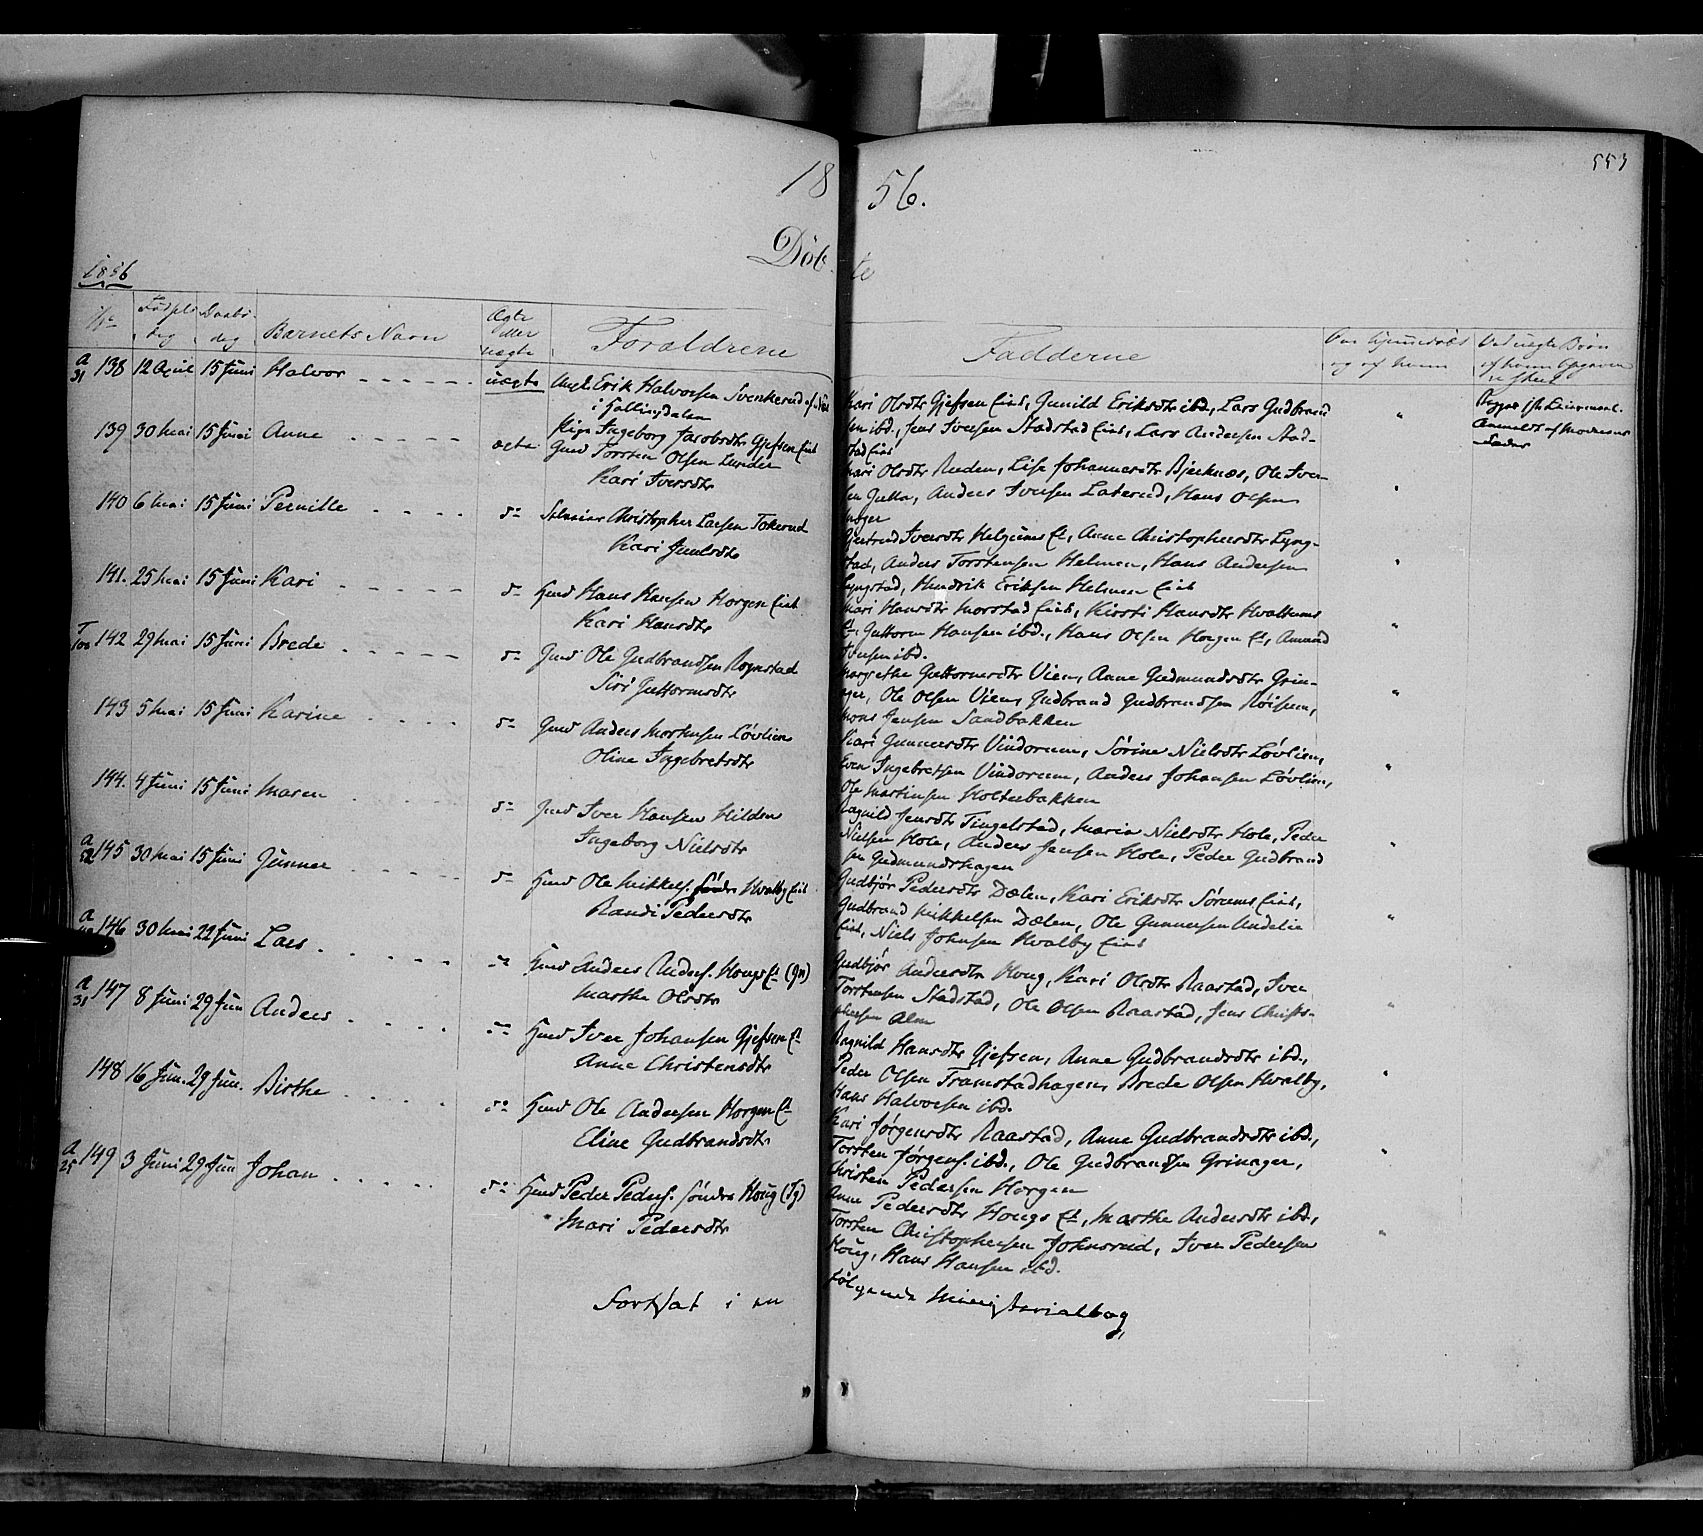 18 56.
553
Döb te
1856
No Fødsels dag Daabs dag Barnets Navn Ægte eller uægte Foraldrene
Fadderne
A 31 138 12 April 15 Juni Halvor uægte Ungk. Erik Halvorsen Svenkerud af Næs
i Hallingdalen
Pige Ingeborg Jacobsdtr Gjefsen Eiet
Kari Olsdtr Gjefsen Eiet, Gunild Eriksdtr ibd, Lars Gudbrand
sen ibd., Jens Iversen Stadstad Eiet, Lars Andersen Stad-
stad Eiet
139 30 Mai 15 Juni Anne ægte Gmd Torsten Olsen Lunder
Kari Iversdtr
Kari Olsdtr Ruden, Lise Johannesdtr Bjerknæs, Ole Iver-
sen, Anders Iversen Laterud, Hans Olsen
140 6 Mai 15 Juni Pernille do Christopher Larsen Tokerud
Kari Juulsdtr
Gjertrud Iversdtr Helgums Et, Anne Christophersdtr Lyng-
stad, Anders Torstensen Helmen, Hans Andersen
Lyngstad, Hendrik Eriksen Helmen Eiet
141. 25 Mai 15 Juni Kari do Hmd Hans Hansen Horgen Eiet
Kari Hansdtr
Mari Hansdtr Morstad Eiet, Kirsti Hansdtr Hvattums
Et, Guttorm Hansen ibd., Hans Olsen Horgen Et, Amund
Iversen ibd.
142 29 Mai 15 Juni Brede do Gmd Ole Gudbrandsen Rognstad
Siri Guttormsdtr
Margrethe Guttormsdtr Vien, Anne Gudmundsdtr Grin-
ager, Ole Olsen Vien, Gudbrand Gudbrandsen Røisum,
Mons Jensen Sandbakken
143 5 Mai 15 Juni Karine do Gmd Anders Mortensen Løvlien
Oline Ingebretsdtr
Kari Gunnersdtr Vindorum, Sørine Nielsdtr Løvlien,
Even Ingebretsen Vindorum, Anders Johansen Løvlien,
Ole Martinsen Holtebakken
144. 4 Juni 15 Juni Maren do Gmd Iver Hansen Hilden
Ingeborg Nielsdtr
Ragnild Jensdtr Tingelstad, Maria Nielsdtr Hole, Peder
Nielsen Hole, Anders Jensen Hole, Peder Gudbrand
sen Gudmundshagen
A 52 145 30 Mai 15 Juni Gunner do Hmd Ole Mikkels. Søndre Hvalby Eiet
Randi Pedersdtr
Gudbjør Pedersdtr Dælen, Kari Eriksdtr Sørums Eiet,
Gudbrand Mikkelsen Dælen, Ole Gunnersen Undelie
Eiet, Niels Johnsen Hvalby Eiet
A 146 30 Mai 22 Juni Lars do Hmd Anders Anders. Hougs Et (Gn)
Marthe Olsdtr
Gudbjør Andersdtr Houg, Kari Olsdtr Raastad, Iver
Torstensen Stadstad, Ole Olsen Raastad, Jens Christo-
phersen Alm
A 31 147 8 Juni 29 Jun Anders do Hmd Iver Johansen Gjefsen Et
Anne Christensdtr
Ragnild Hansdtr Gjefsen, Anne Gudbrandsdtr ibd.,
Peder Olsen Framstadhagen, Brede Olsen Hvalby,
Hans Halvorsen ibd.
148 16 Jun. 29 Jun. Birthe do Hmd Ole Andersen Horgen Et
Eline Gudbrandsdtr
Kari Jørgensdtr Raastad, Anne Gudbrandsdtr ibd.,
Torsten Jørgens. ibd., Ole Gudbrandsen Grinager,
Christen Pedersen Horgen
A 25 149 3 Juni 29 Jun Johan do Hmd Peder Peders. Søndre Houg (Tg)
Mari Pedersdtr
Anne Pedersdtr Hougs Et, Marthe Andersdtr ibd,
Torsten Christophersen Johnsrud, Iver Pedersen
Houg, Hans Hansen ibd.
Fortsat i en følgende Ministerialbog,